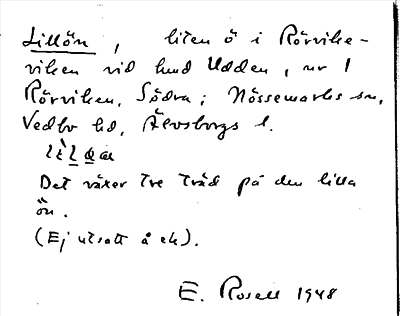 Lillön, liten ö i Rörviks-
viken vid hmd Udden, nr 1
Rörviken, Södra; Nössemarks sn,
Vedbo hd, Älvsborgs l.
Det växer tre träd på den lilla
ön.
(Ej utsatt å ek).
E. Rosell 1948